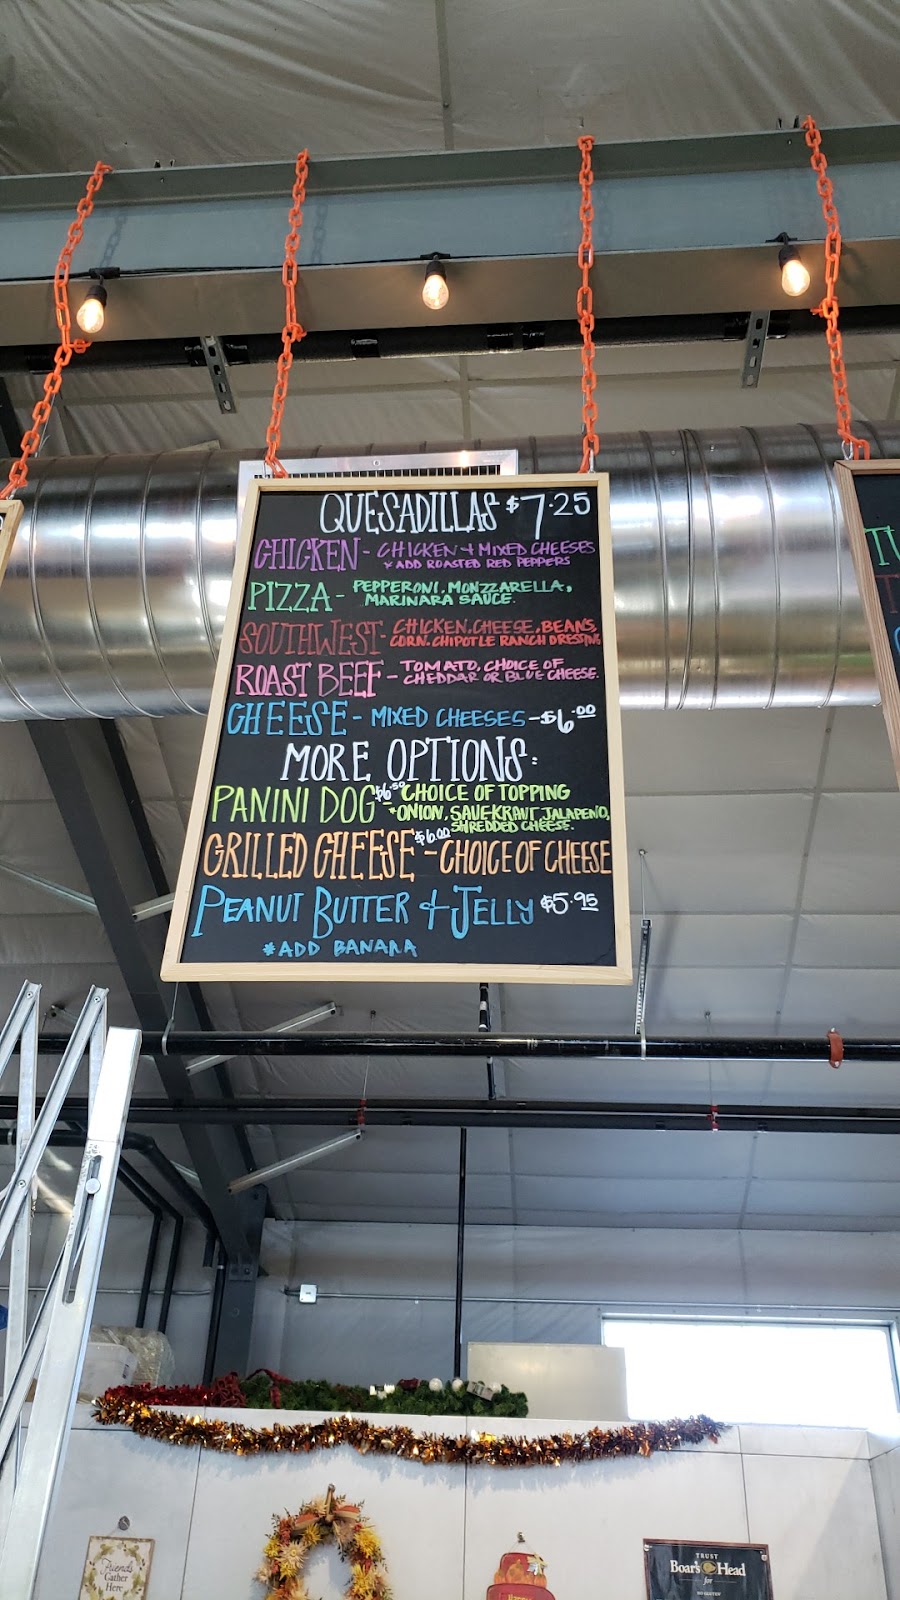 QUESADILLAS $7.25
CHICKEN - CHICKEN + MIXED CHEESES
* ADD ROASTED RED PEPPERS
PIZZA - PEPPERONI, MONZZARELLA,
MARINARA SAUCE.
SOUTHWEST - CHICKEN, CHEESE, BEANS,
CORN, CHIPOTLE RANCH DRESSING
ROAST BEEF - TOMATO, CHOICE OF
CHEDDAR OR BLUE CHEESE.
CHEESE - MIXED CHEESES - $6.00
MORE OPTIONS:
PANINI DOG $6.50 - CHOICE OF TOPPING
* ONION, SAUEKRAUT, JALAPENO,
SHREDDED CHEESE.
GRILLED CHEESE $6.00 - CHOICE OF CHEESE
PEANUT BUTTER + JELLY $5.95
* ADD BANANA
Friends
Gather
Here
TRUST
Boar's Head
for